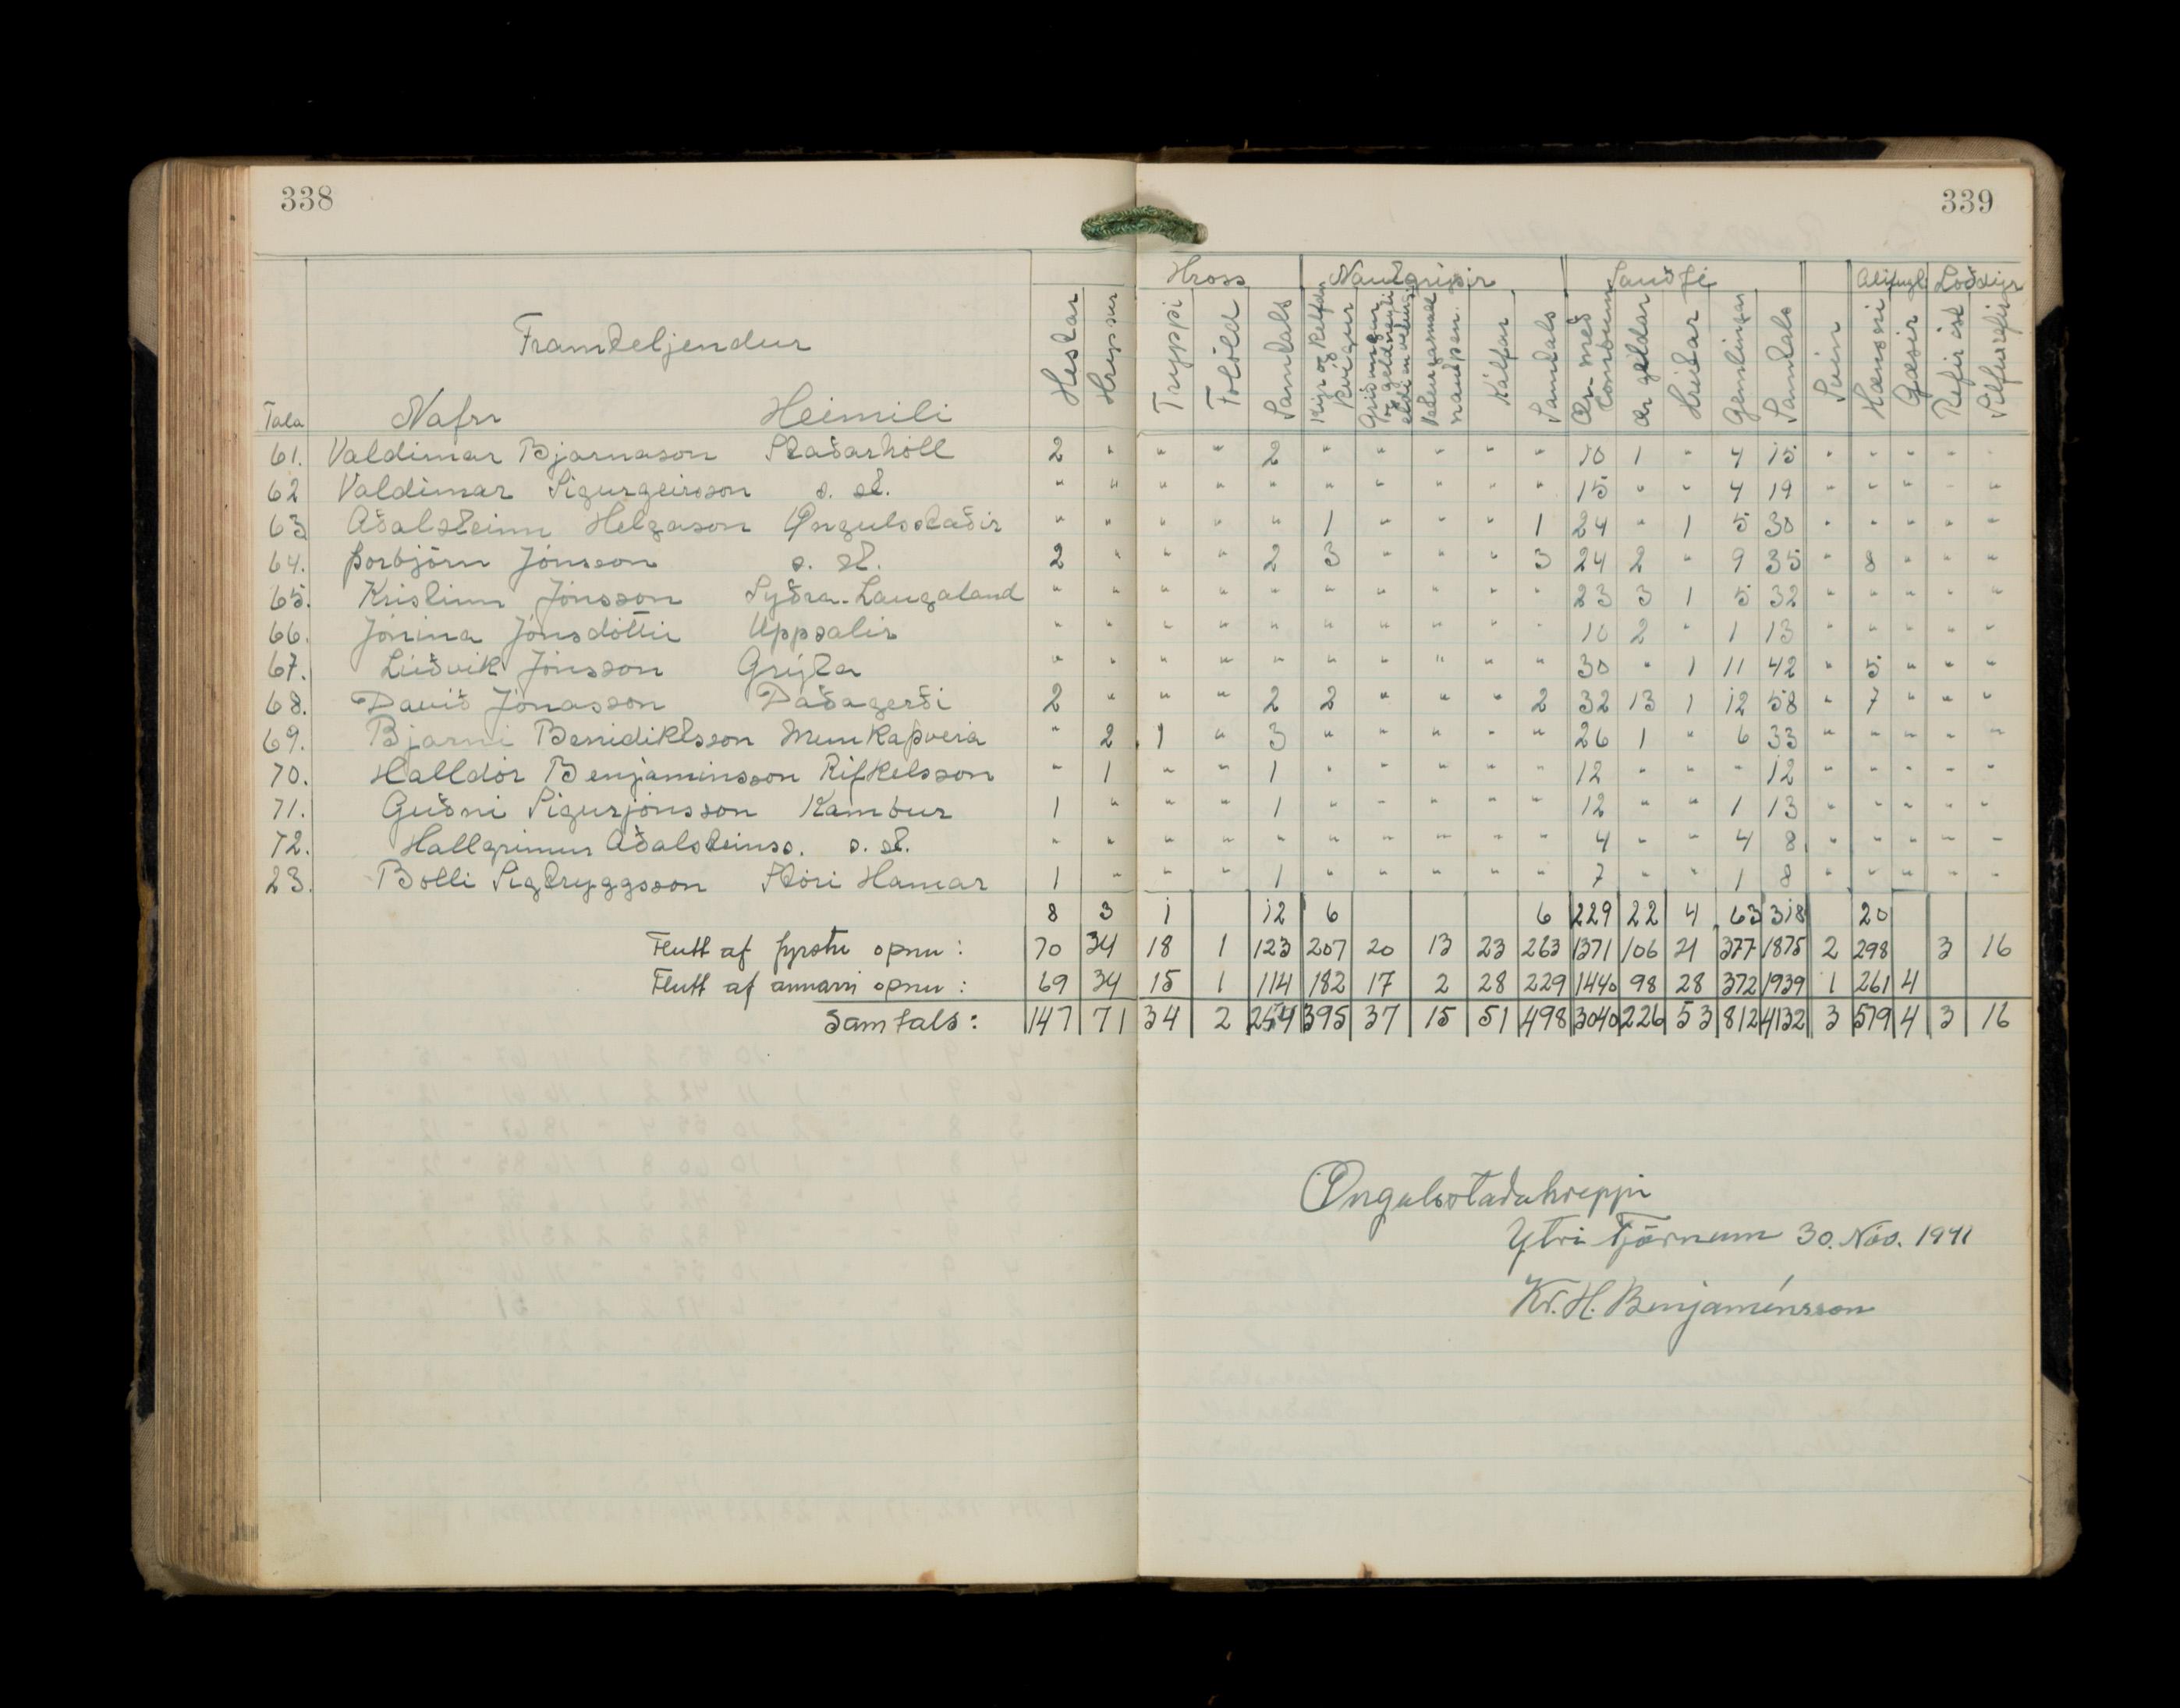 338
339
Hross Nautgripir Sauðfé Alifugl Loðdýr
Framteljendur
Tala Nafn Heimili Hestar Hryssur Tryppi Folöld Samtals Kýr og kelfdar kvígur Griðungar og geldneyti eldri en veturg. Veturgamall nautpen. Kálfar Samtals Ær með lömbum Ær geldar Hrútar Gemlingar Samtals Svín Hænsni Gæsir Refir ísl Silfurrefir
61. Valdimar Bjarnason Staðarhóll 2 " " " 2 " " " " " 10 1 " 4 15 " " " " "
62 Valdimar Sigurgeirsson s. st. " " " " " " " " " " 15 " " 4 19 " " " " "
63 Aðalsteinn Helgason Öngulsstaðir " " " " " 1 " " " 1 24 " 1 5 30 " " " " "
64. Þorbjörn Jónsson s. st. 2 " " " 2 3 " " " 3 24 2 " 9 35 " 8 " " "
65. Kristinn Jónsson Syðra-Laugaland " " " " " " " " " " 23 3 1 5 32 " " " " "
66. Jónína Jónsdóttir Uppsalir " " " " " " " " " " 10 2 " 1 13 " " " " "
67. Lúðvík Jónsson Grýta " " " " " " " " " " 30 " 1 11 42 " 5 " " "
68. Davíð Jónasson Daðagerði 2 " " " 2 2 " " " 2 32 13 1 12 58 " 7 " " "
69. Bjarni Benidiktsson Munkaþverá " 2 1 " 3 " " " " " 26 1 " 6 33 " " " " "
70. Halldór Benjamínsson Rifkelsson " 1 " " 1 " " " " " 12 " " " 12 " " " " "
71. Guðni Sigurjónsson Kambur 1 " " " 1 " " " " " 12 " " 1 13 " " " " "
72. Hallgrímur Aðalsteinss. s. st. " " " " " " " " " " 4 " " 4 8 " " " " "
23. Bolli Sigtryggsson Stóri Hamar 1 " " " 1 " " " " " 7 " " 1 8 " " " " "
8 3 1 12 6 6 229 22 4 63 318 20
Flutt af fyrstu opnu: 70 34 18 1 123 207 20 13 23 263 1371 106 21 377 1875 2 298 3 16
Flutt af annarri opnu: 69 34 15 1 114 182 17 2 28 229 1440 98 28 372 1939 1 261 4
Samtals: 147 71 34 2 254 395 37 15 51 498 3040 226 53 812 4132 3 579 4 3 16
Öngulsstaðahreppi
Ytri Tjörnum 30. Nóv. 1941
Kr. H. Benjamínsson